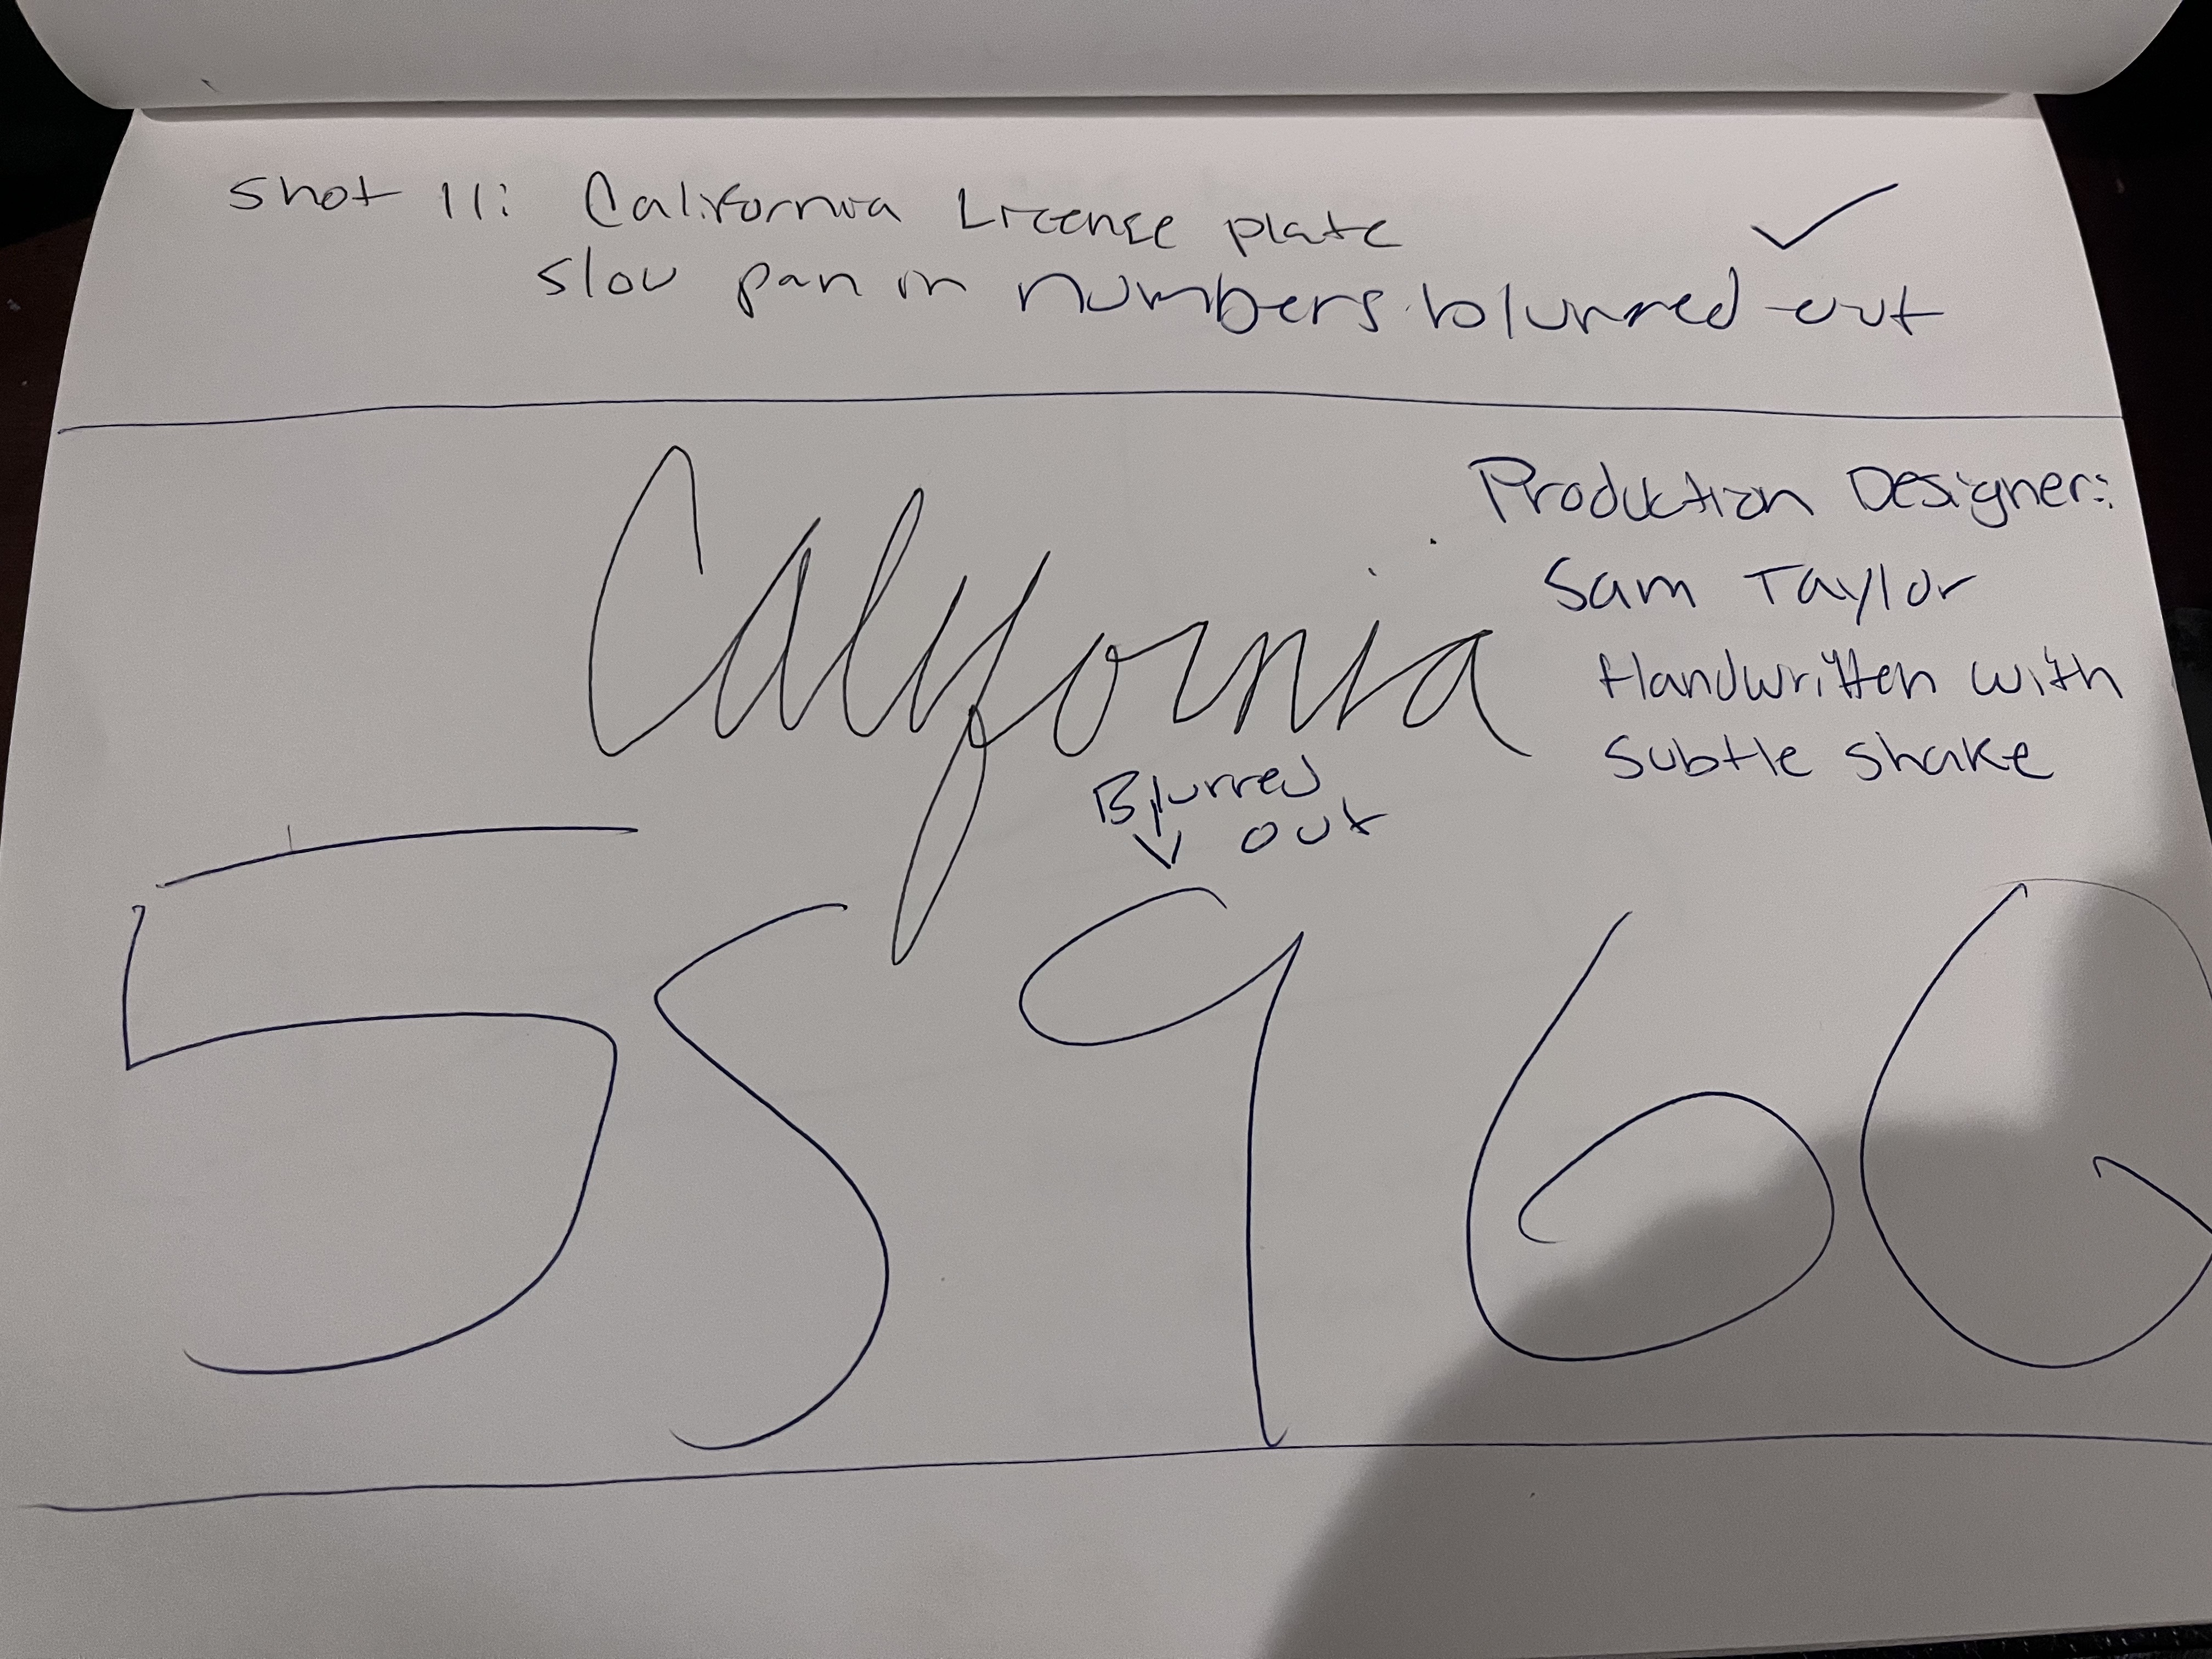 Shot 11: California License plate
slow pan in numbers blurred out
California
Production Designer:
Sam Taylor
Handwritten with
subtle shake
Blurred
out
5S966